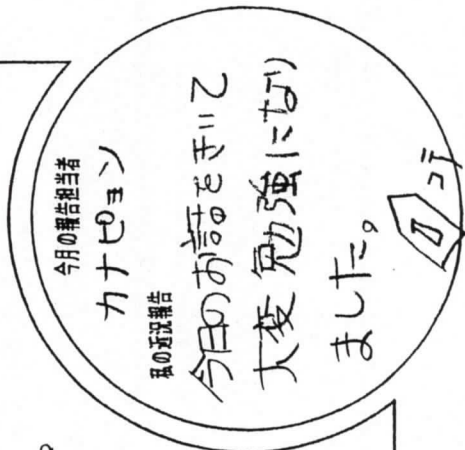 今月の報告担当者
カナピョン
私の近況報告
今日のお話をきいて
大変勉強になり
ました。
コテ
。